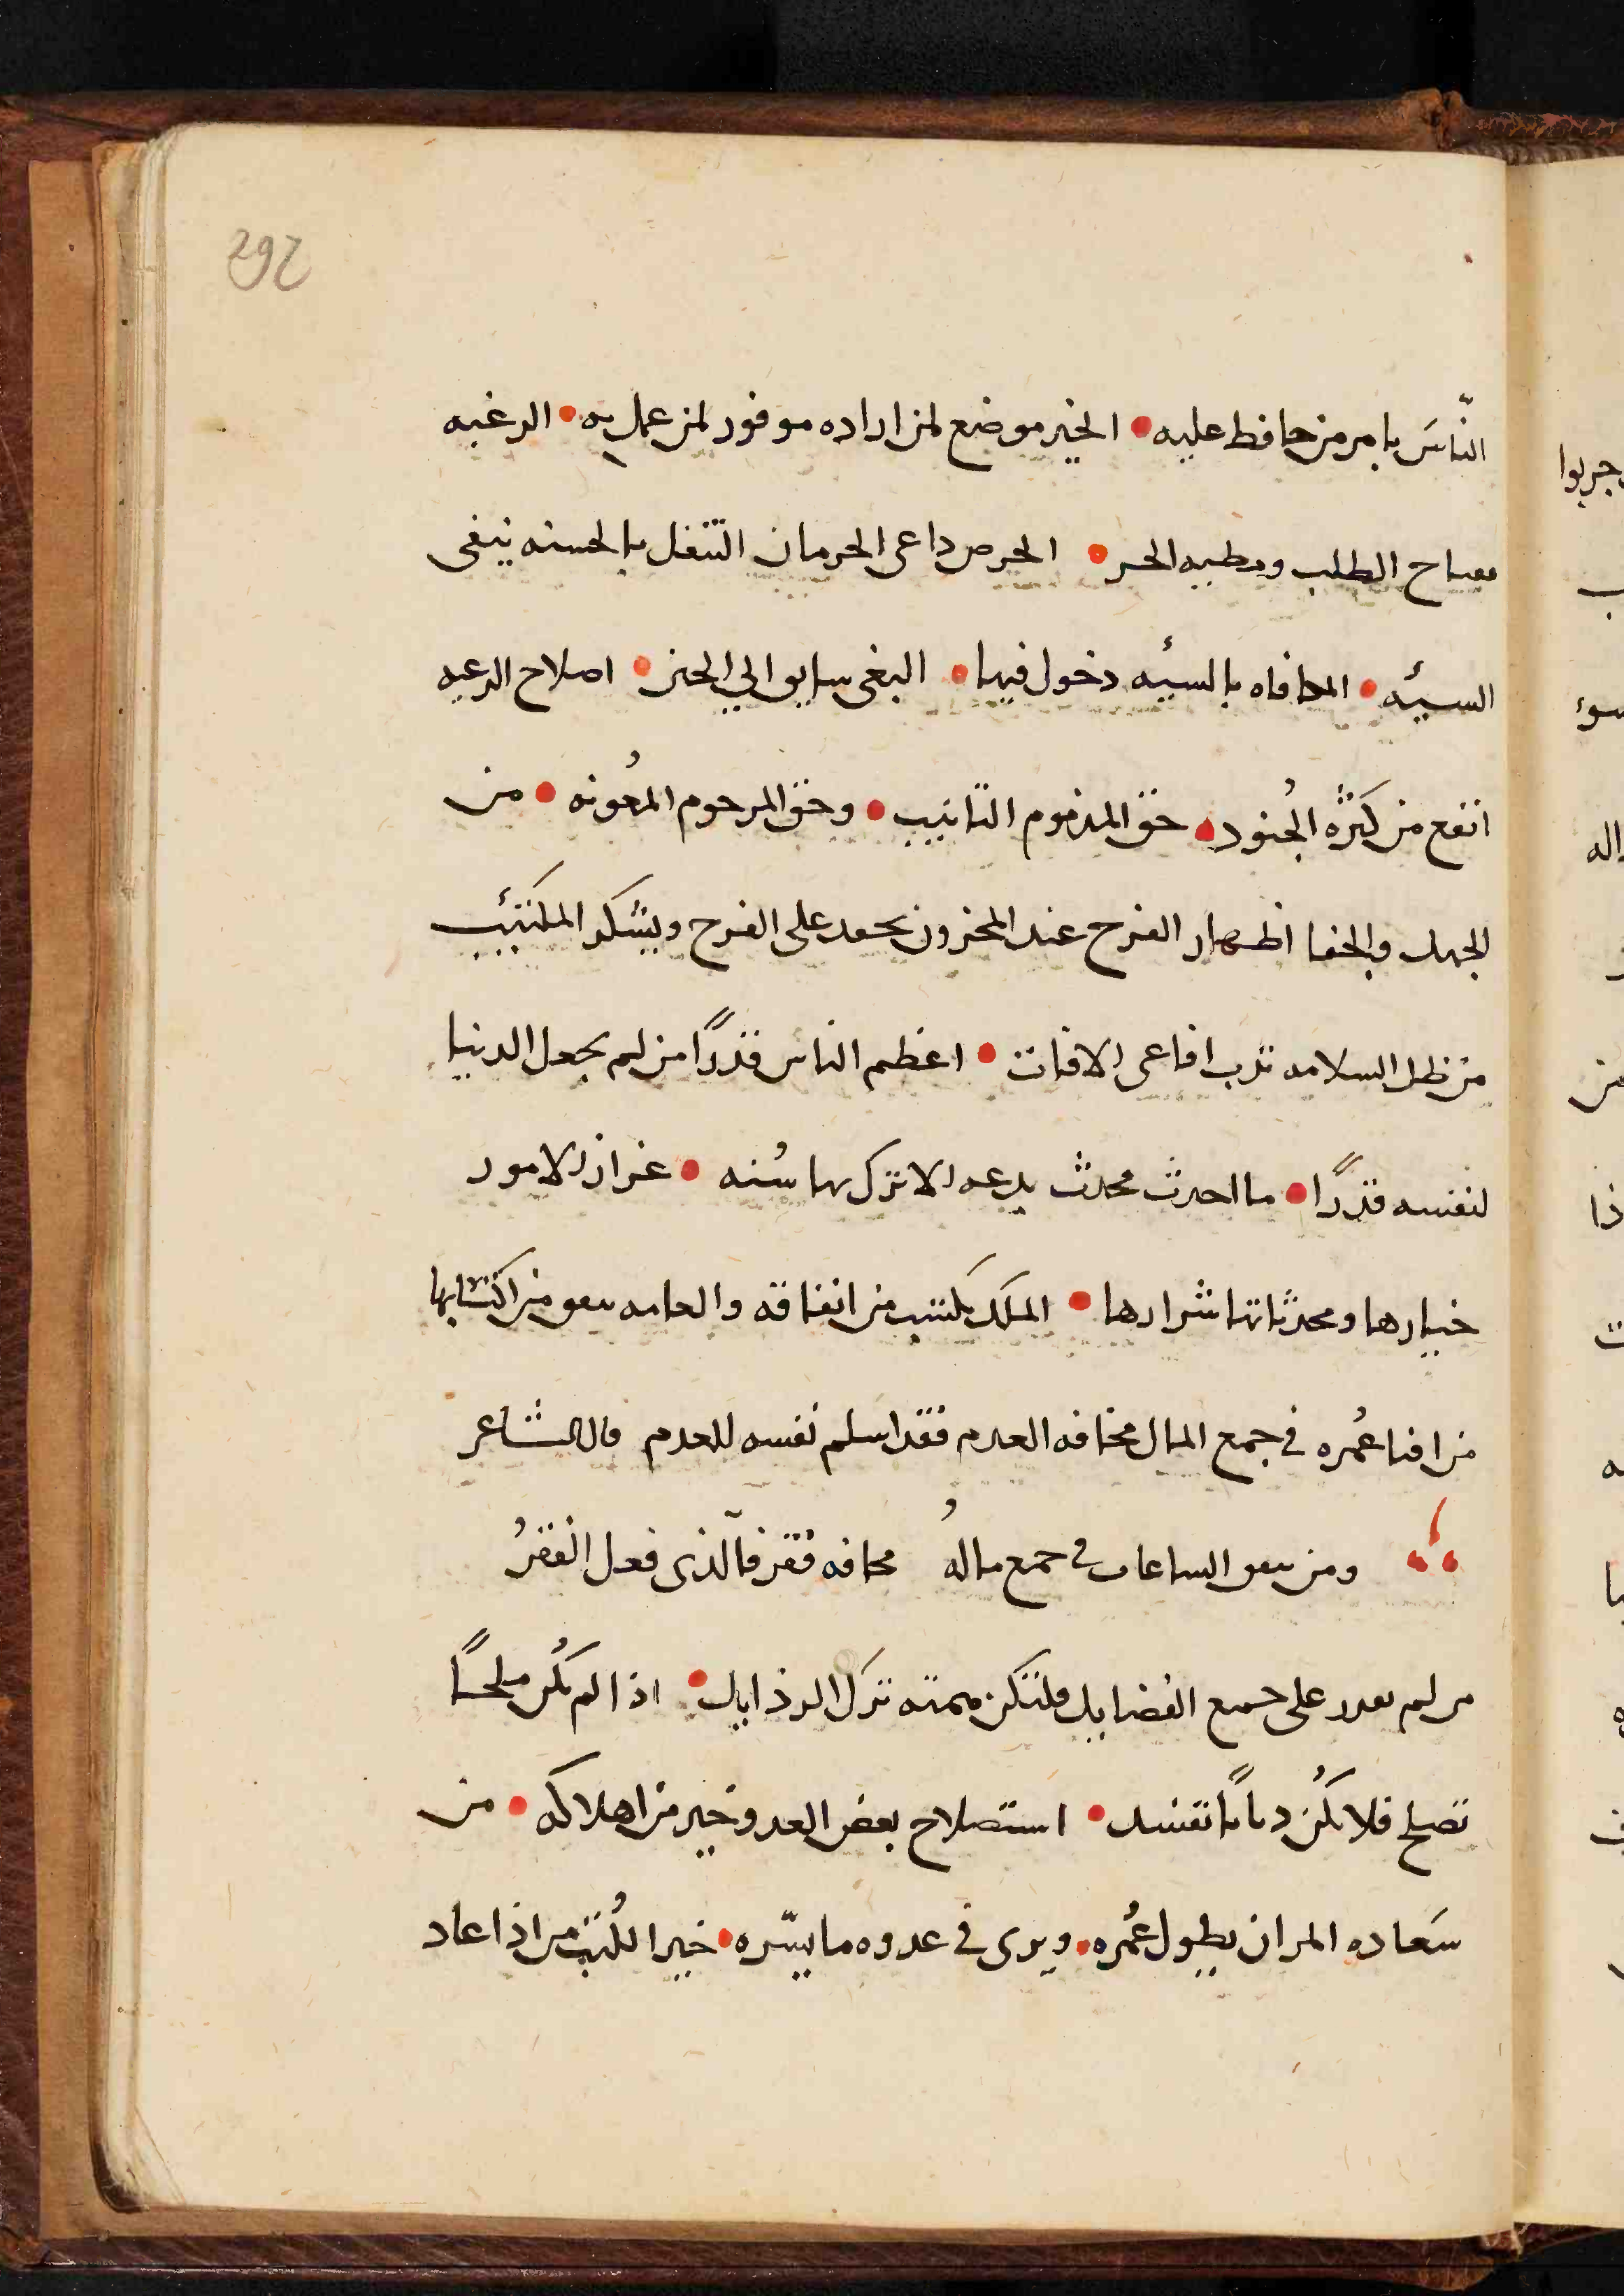 292
النّاسَ بامر من حافظ عليه • الخير موضع لمن اراده موفور لمن عمل به • الرغبه
مفتاح الطلب ومطيه • الحرص داعى الحرمان التنفل بالحسنه ينفى
السيئه • المكافاه بالسيئه دخول فيها • البغى سايق الي الحين • اصلاح الرعيه
انفع من كثرة الجُنود • حق المذموم التانيب • وحق المرحوم المعُونه • من
الجهل والجفا اظهار الفرح عند المحزون يحقد على الفرح ويشكر المكتئب
من ظل السلامه تدب افاعى الافات • اعظم الناس قدرًا من لم يجعل الدنيا
لنفسه قدرًا • ما احدث محدث بدعه الا ترك بها سُنه • الامور
خيارها ومحدثاتها شرارها • الملك يكتسب من انفاقه والعامه من اكتسابها
من افنا عُمره فى جمع المال مخافه العدم فقد اسلم نفسه للعدم قال الشاعر
ومن ينفق الساعات فى جمع مالهُ مخافه فقر فالذى فعل الفقرُ
من لم يقدر على جميع الفضايل فلتكن همته ترك الرذايل • اذا لم تكُن ملحًا
تصلح فلا تكُن ذبابًا تفسد • استصلاح بعض العدو خير من اهلاكه • من
سَعاده المر ان يطول عُمره • ويرى فى عدوه ما يسّره • خير الكُتب من اذا عاد
جربوا
سوء
اله
من
ذا